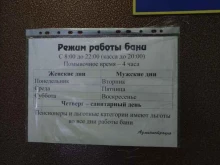 Режим работы бани
С 8:00 до 22:00 (касса до 20:00)
Помывочное время – 4 часа
Женские дни Мужские дни
Понедельник Вторник
Среда Пятница
Суббота Воскресенье
Четверг – санитарный день
Пенсионеры и льготные категории имеют льготы
во все дни работы бани
Администрация